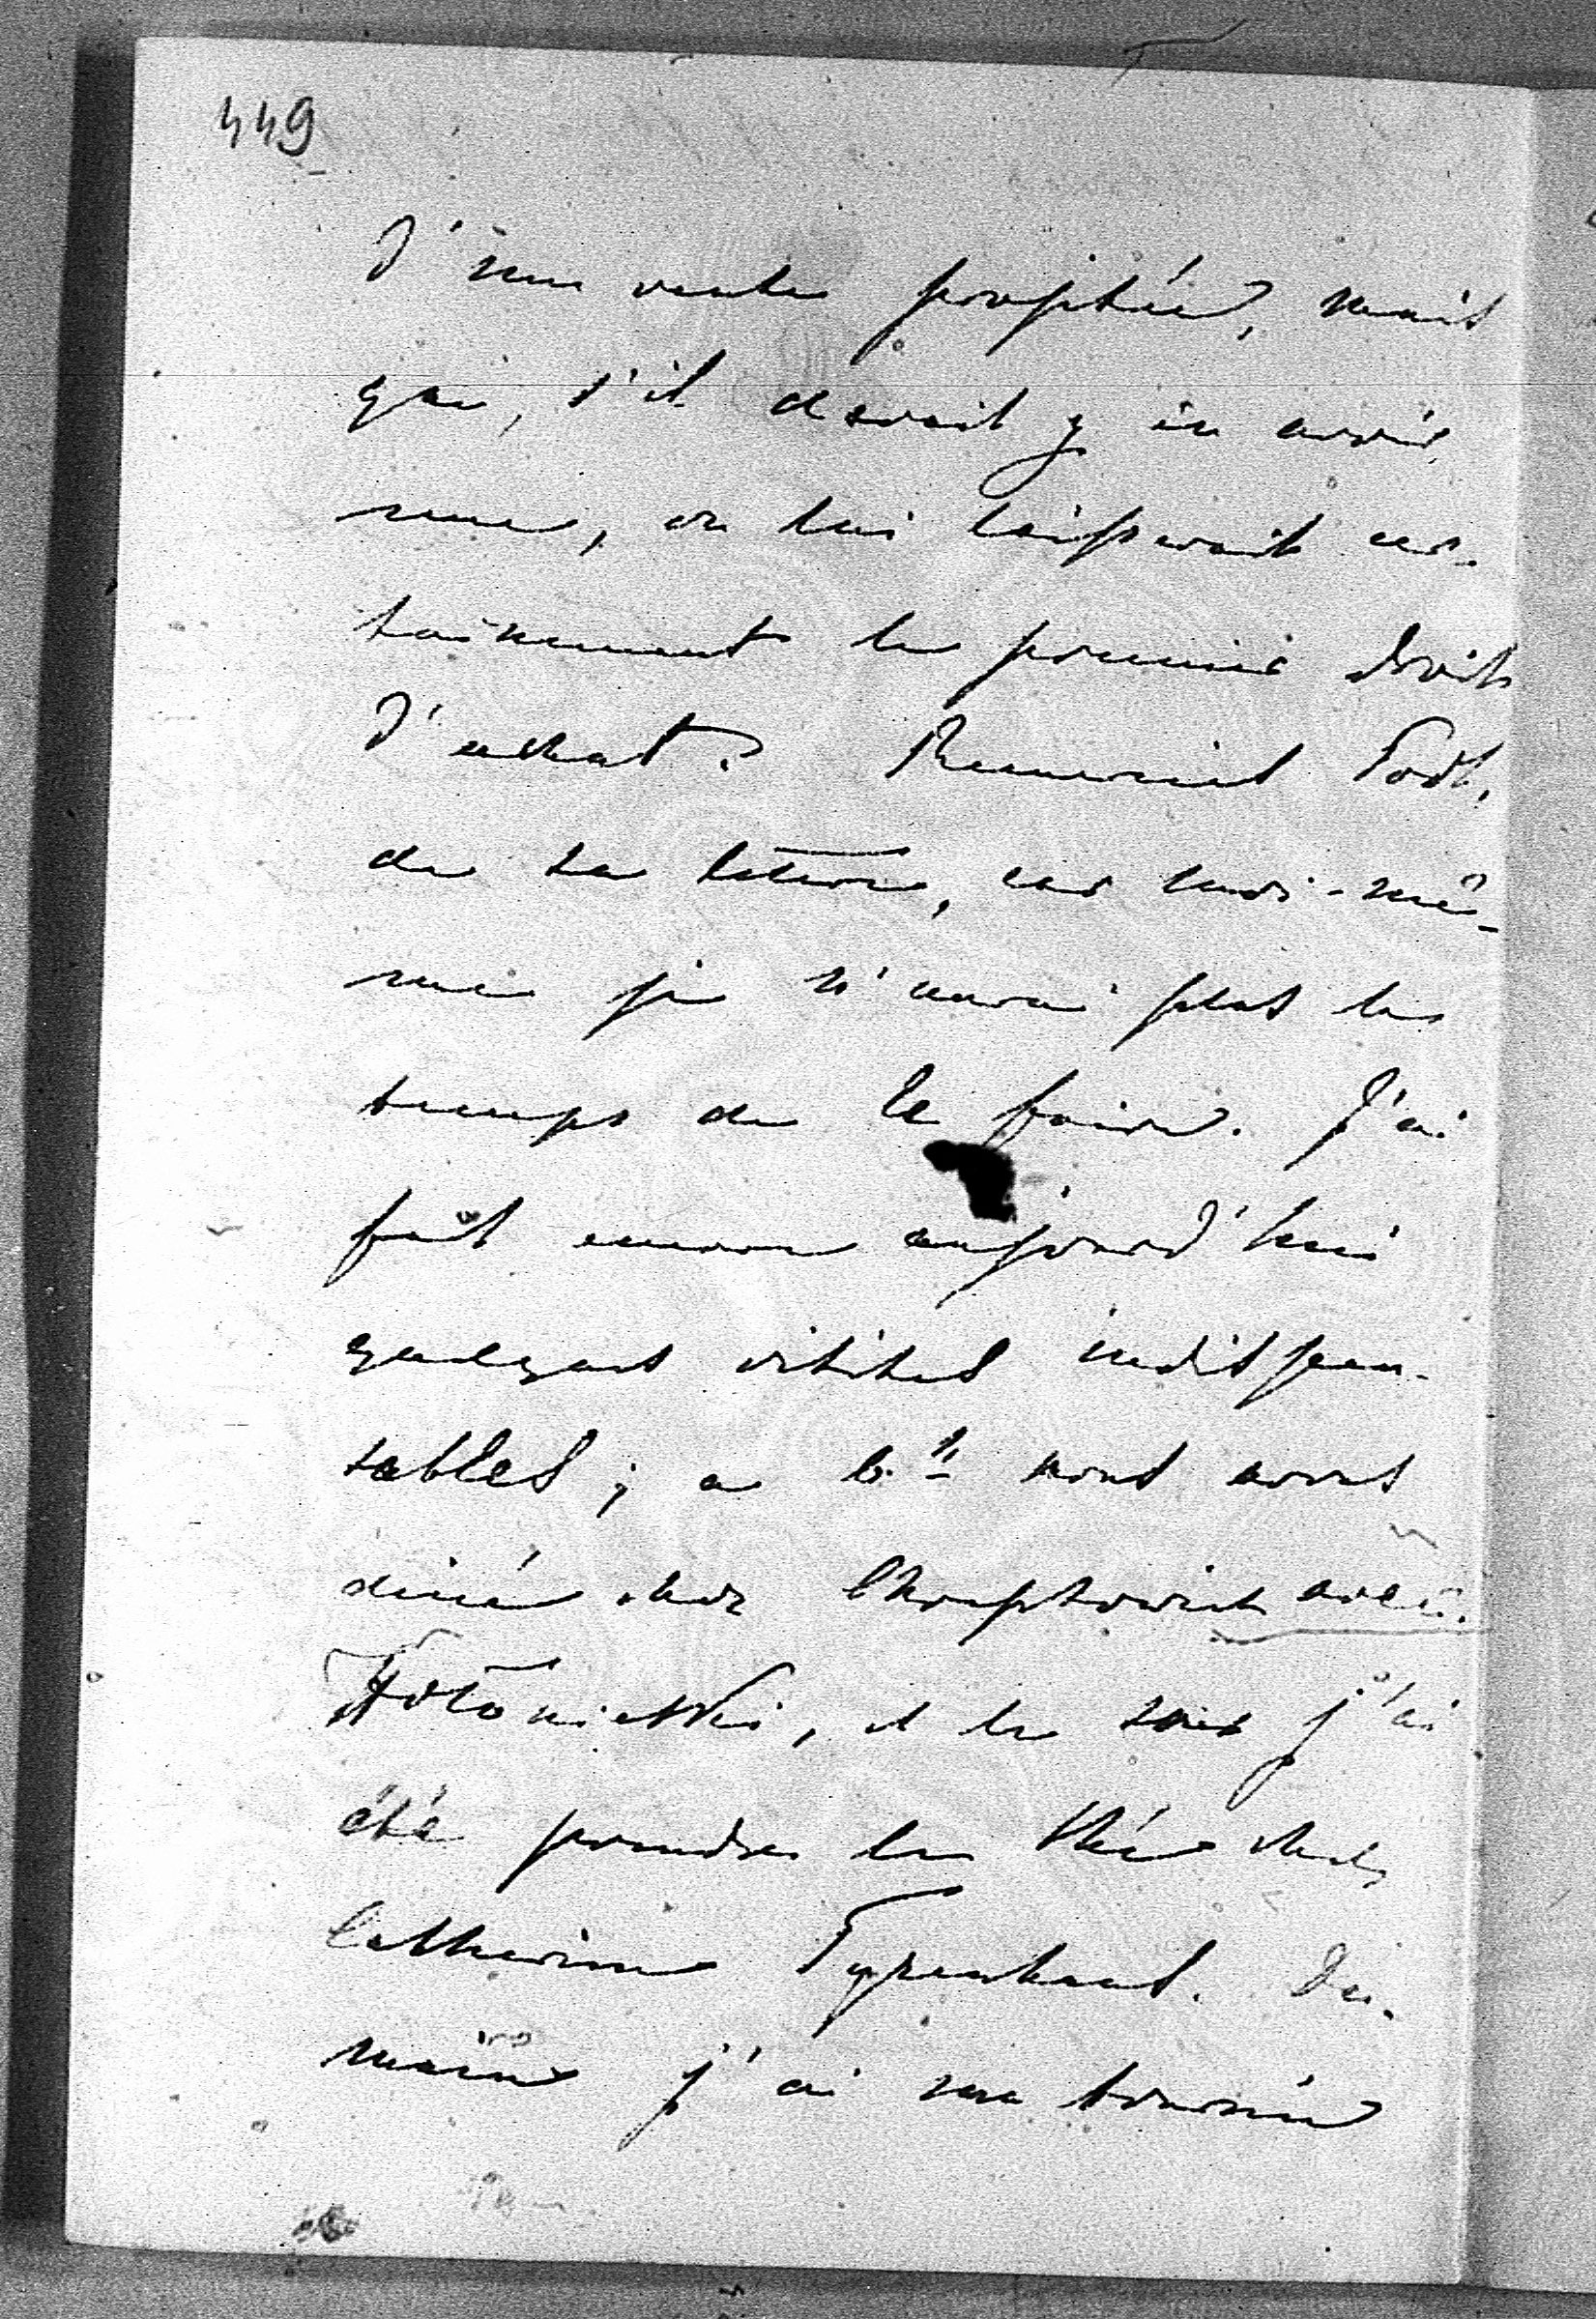 449
d'une vente projetée, mais
que, s'il devait y en avoir
une, on lui laisserait cer-
tainement le premier droit
d'achat? Remerciez Podh.
de sa lettre, car moi-mê-
me je n'aurai plus le
temps de le faire. J'ai
fait encore aujourd'hui
quelques visites indispen-
sables; a 6.h nous avons
diné chez Chreptowich avec
Hołoniewski, et le soir j'ai
été prendre le thé chez
Catherine Tyzenhaus. De-
main j'ai ma tournée